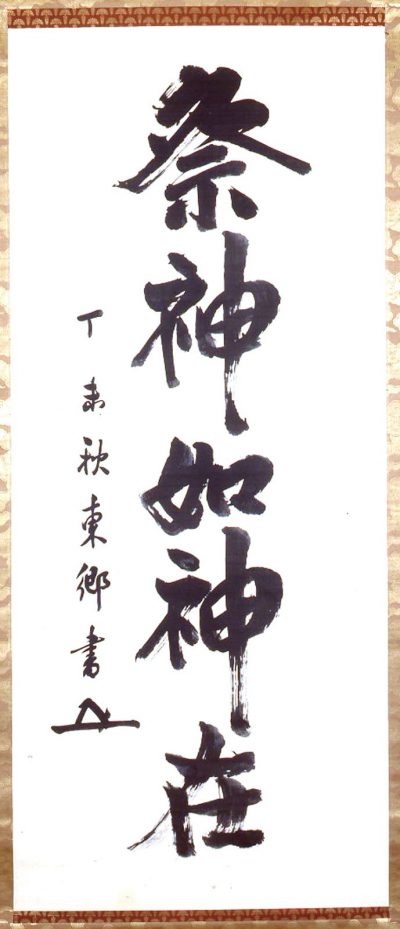 祭神如神在
丁未秋東郷書